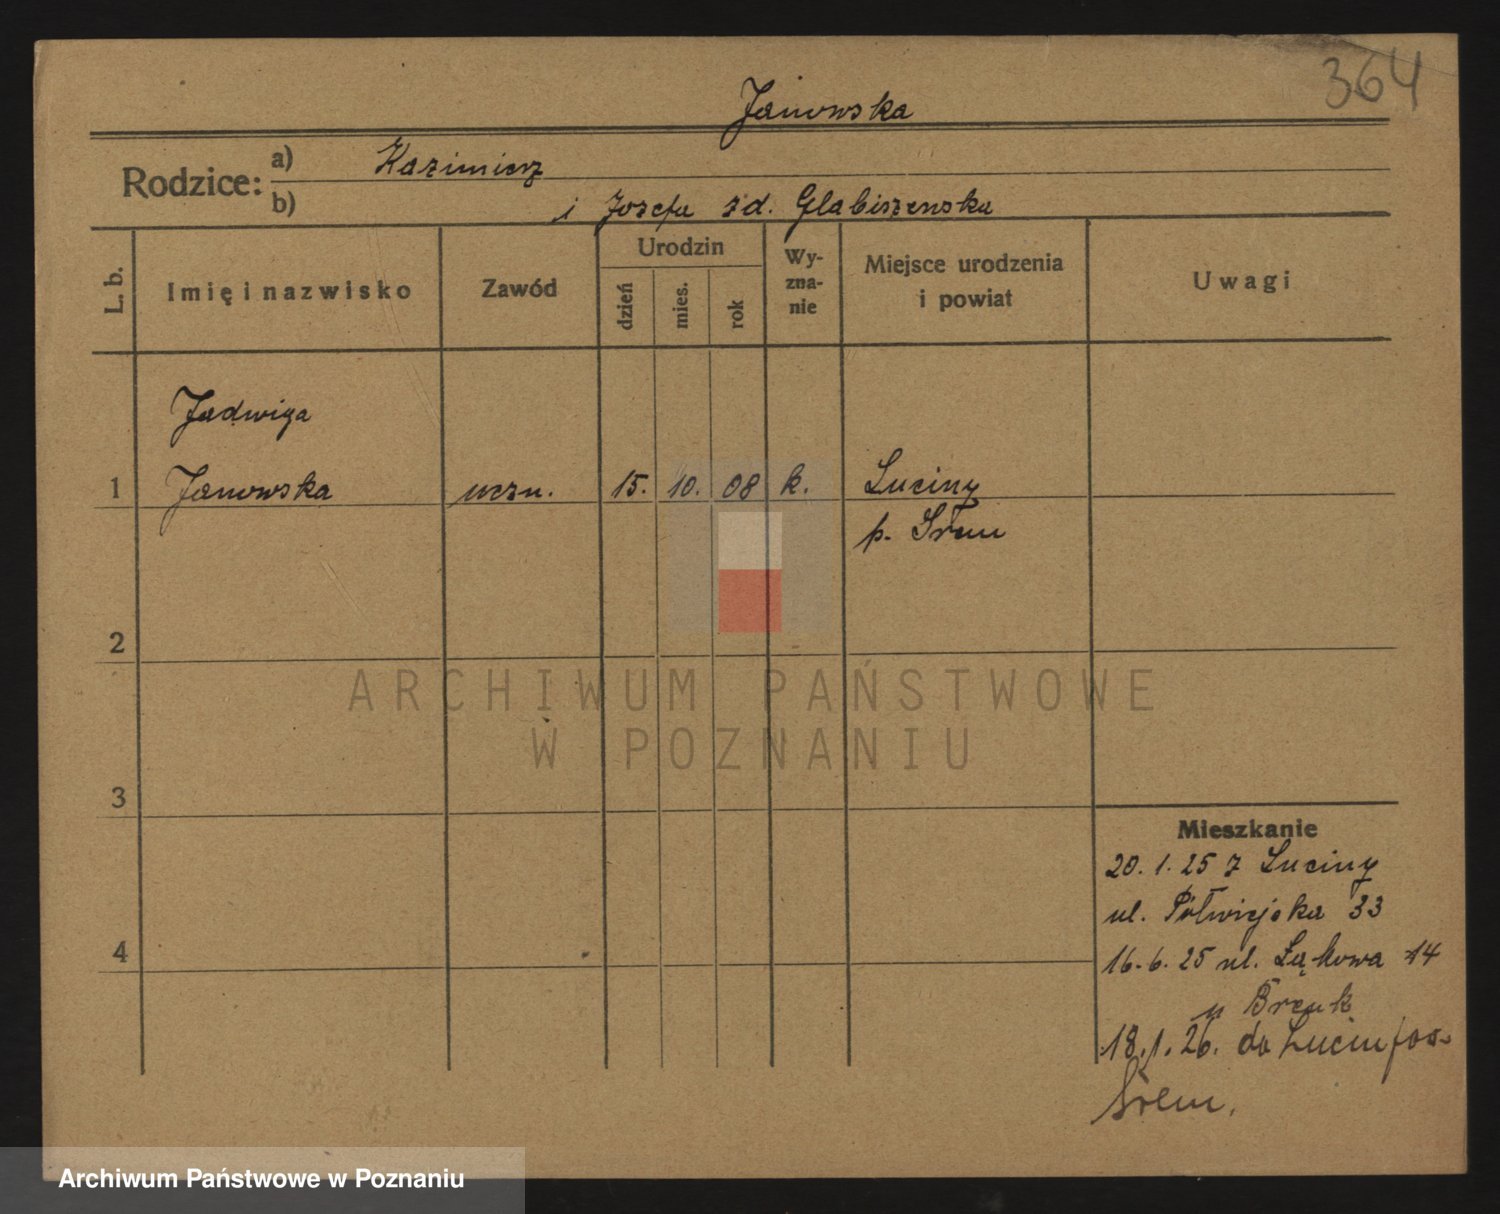 364
Janowska
Rodzice:
a) Kazimierz
b) i Jozefa zd. Glabiszewska
L. b.
Imię i nazwisko
Zawód
Urodzin
dzień
mies.
rok
Wy-
zna-
nie
Miejsce urodzenia
i powiat
Uwagi
Jadwiga
1 Janowska uczn. 15. 10. 08 k. Luciny
p. Śrem
2
3
4
ARCHIWUM PAŃSTWOWE
W POZNANIU
Mieszkanie
20. 1. 25 z Luciny
ul. Półwiejska 33
16. 6. 25 ul. Łąkowa 14
u
18. 1. 26. do Luciny
Śrem.
Archiwum Państwowe w Poznaniu